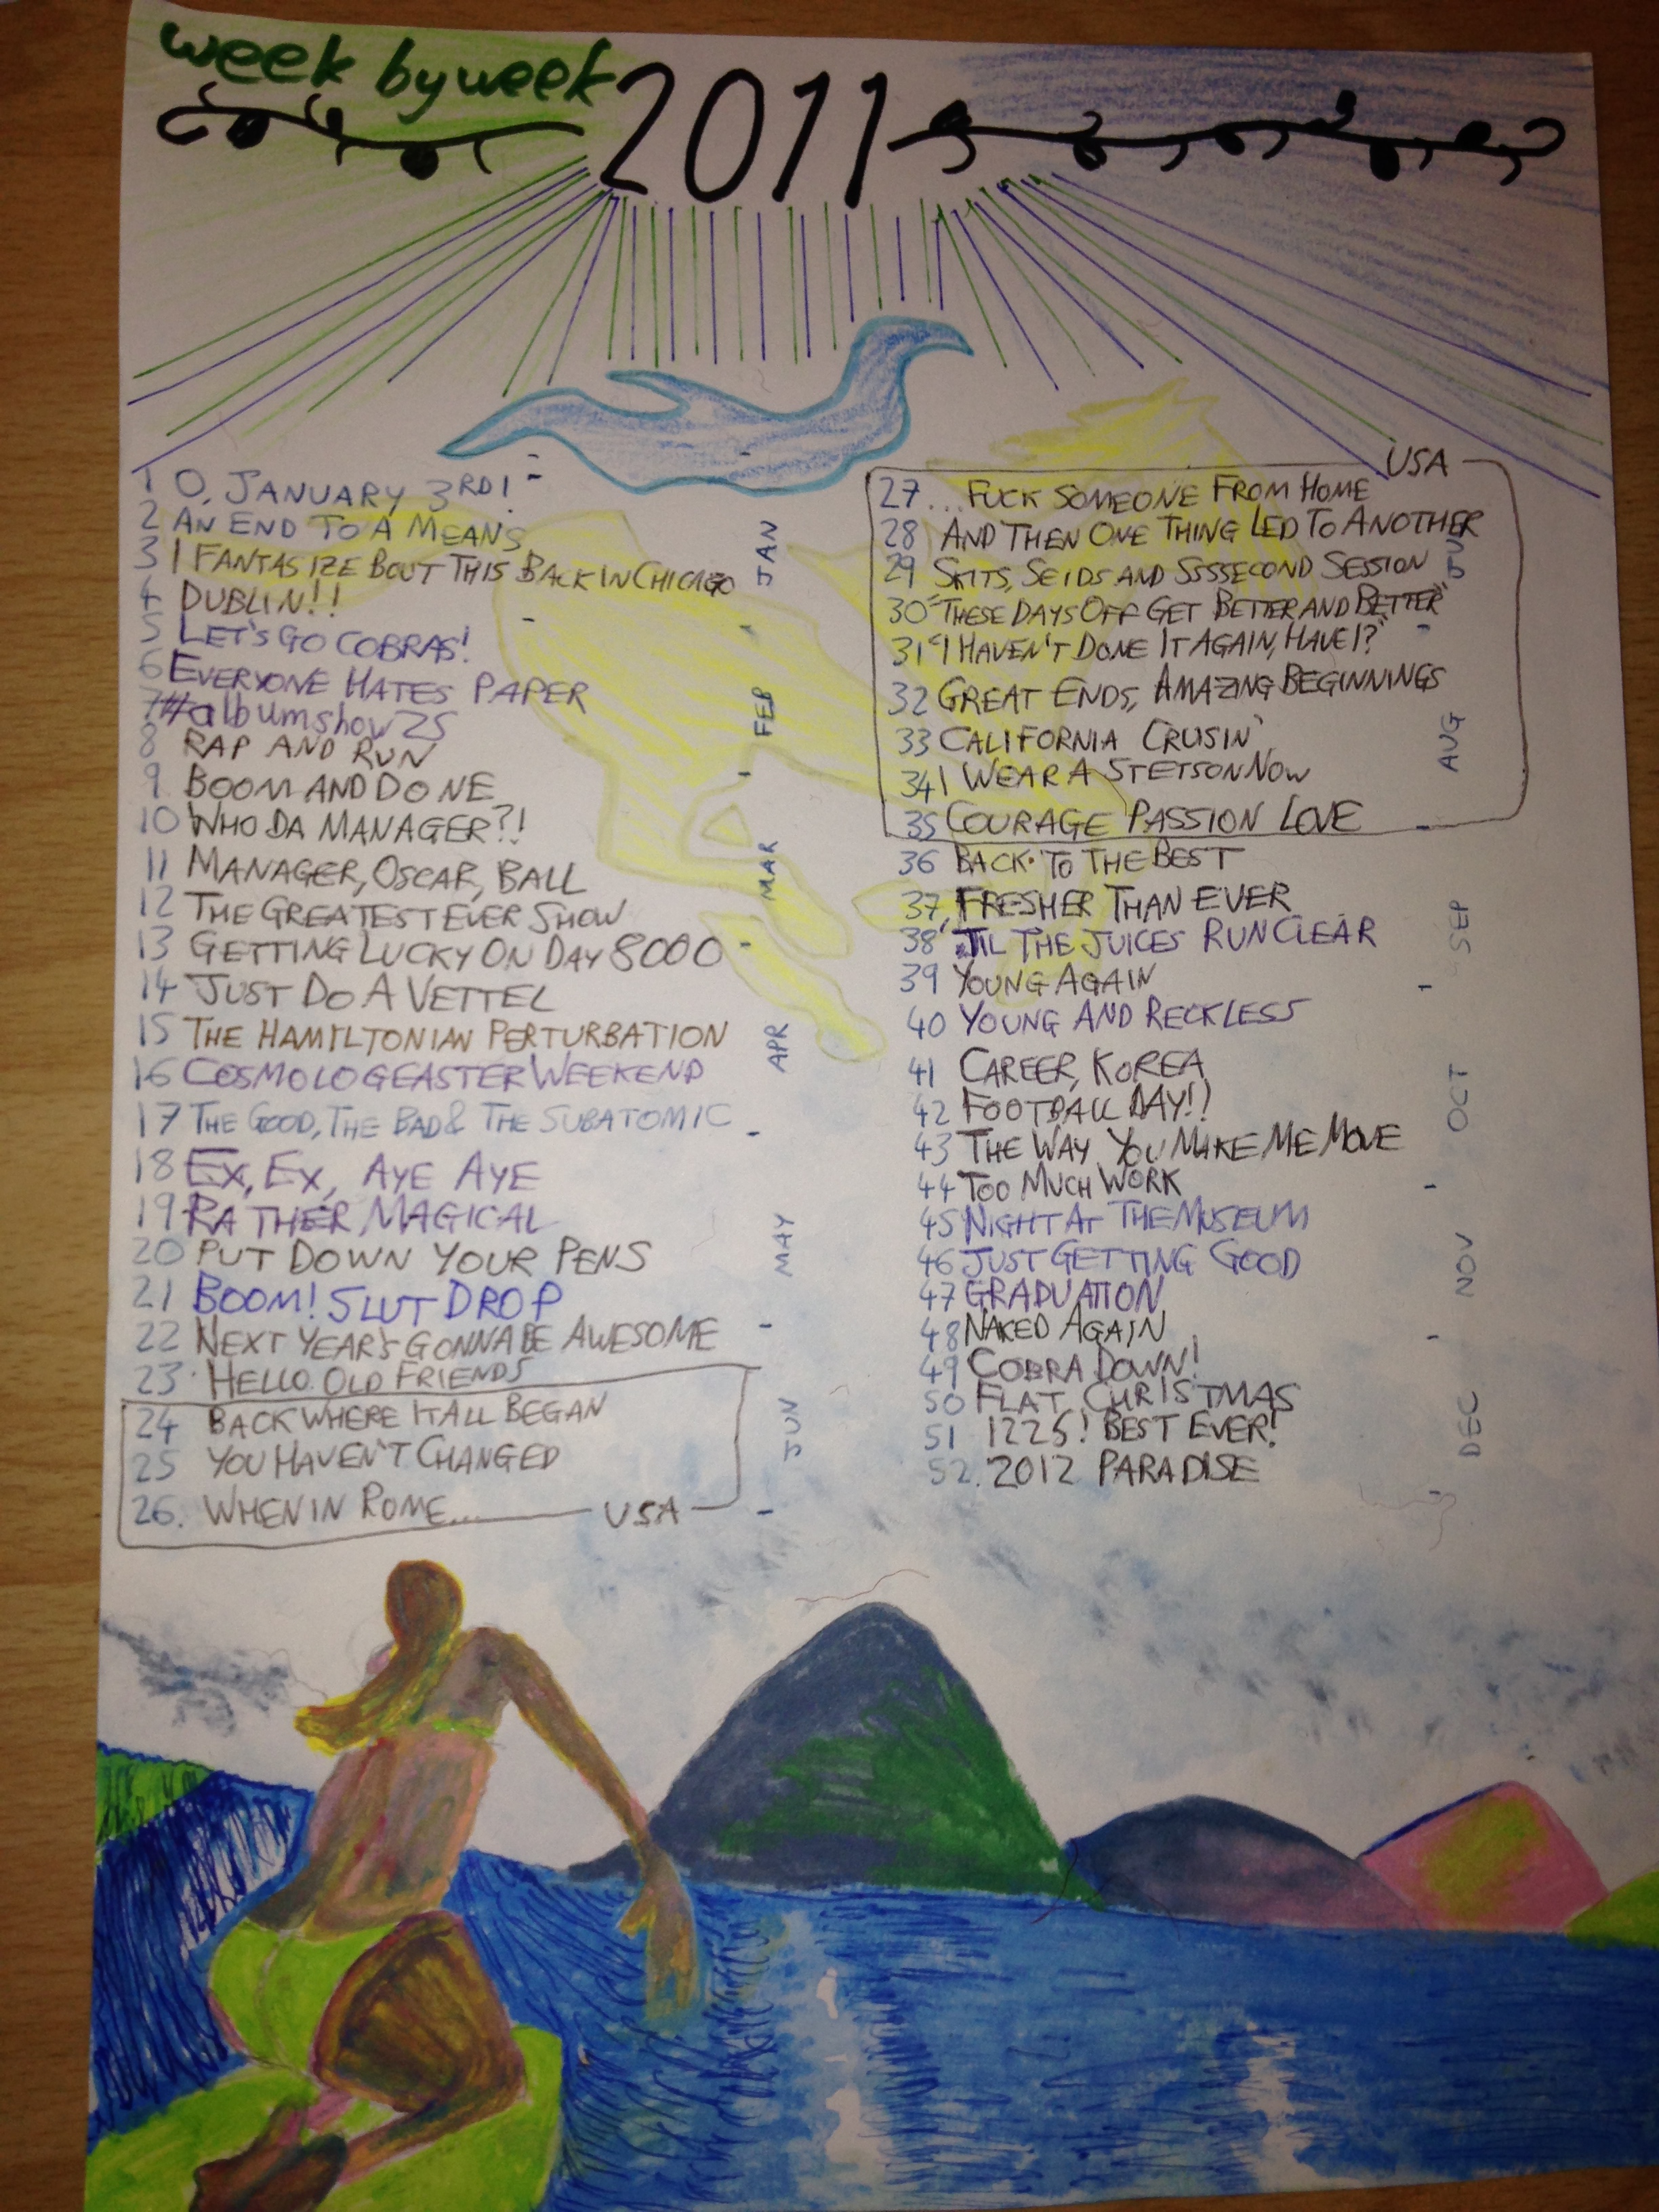 week by week
2011
1 O, JANUARY 3RD!
2 AN END TO A MEANS
3 I FANTASIZE BOUT THIS BACK IN CHICAGO
4 DUBLIN!!
5 LET'S GO COBRAS!
6 EVERYONE HATES PAPER
7 #albumshow25
8 RAP AND RUN
9 BOOM AND DONE
10 WHO DA MANAGER?!
11 MANAGER, OSCAR, BALL
12 THE GREATEST EVER SHOW
13 GETTING LUCKY ON DAY 8000
14 JUST DO A VETTEL
15 THE HAMILTONIAN PERTURBATION
16 COSMOLOGEASTER WEEKEND
17 THE GOOD, THE BAD & THE SUBATOMIC
18 EX, EX, AYE AYE
19 RATHER MAGICAL
20 PUT DOWN YOUR PENS
21 BOOM! SLUT DROP
22 NEXT YEAR'S GONNA BE AWESOME
23 HELLO OLD FRIENDS
24 BACK WHERE IT ALL BEGAN
25 YOU HAVEN'T CHANGED
26. WHEN IN ROME...
USA
JAN
FEB
MAR
APR
MAY
JUN
USA
27 ...FUCK SOMEONE FROM HOME
28 AND THEN ONE THING LED TO ANOTHER
29 SKITS, SEIDS AND SSSSECOND SESSION
30 "THESE DAYS OFF GET BETTER AND BETTER"
31 "I HAVEN'T DONE IT AGAIN, HAVE I?"
32 GREAT ENDS, AMAZING BEGINNINGS
33 CALIFORNIA CRUSIN'
34 I WEAR A STETSON NOW
35 COURAGE PASSION LOVE
36 BACK TO THE BEST
37 FRESHER THAN EVER
38 'TIL THE JUICES RUN CLEAR
39 YOUNG AGAIN
40 YOUNG AND RECKLESS
41 CAREER, KOREA
42 FOOTBALL DAY!!
43 THE WAY YOU MAKE ME MOVE
44 TOO MUCH WORK
45 NIGHT AT THE MUSEUM
46 JUST GETTING GOOD
47 GRADUATION
48 NAKED AGAIN
49 COBRA DOWN!
50 FLAT CHRISTMAS
51 1225! BEST EVER!
52. 2012 PARADISE
JUL
AUG
SEP
OCT
NOV
DEC